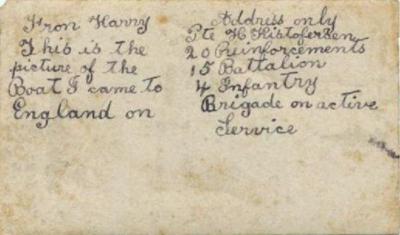 Fron Harry
This is the
picture of the
Boat I came to
England on
Address only
Pte H Histofersen
20 Reinforcements
15 Battalion
4 Infantry
Brigade on active
Service